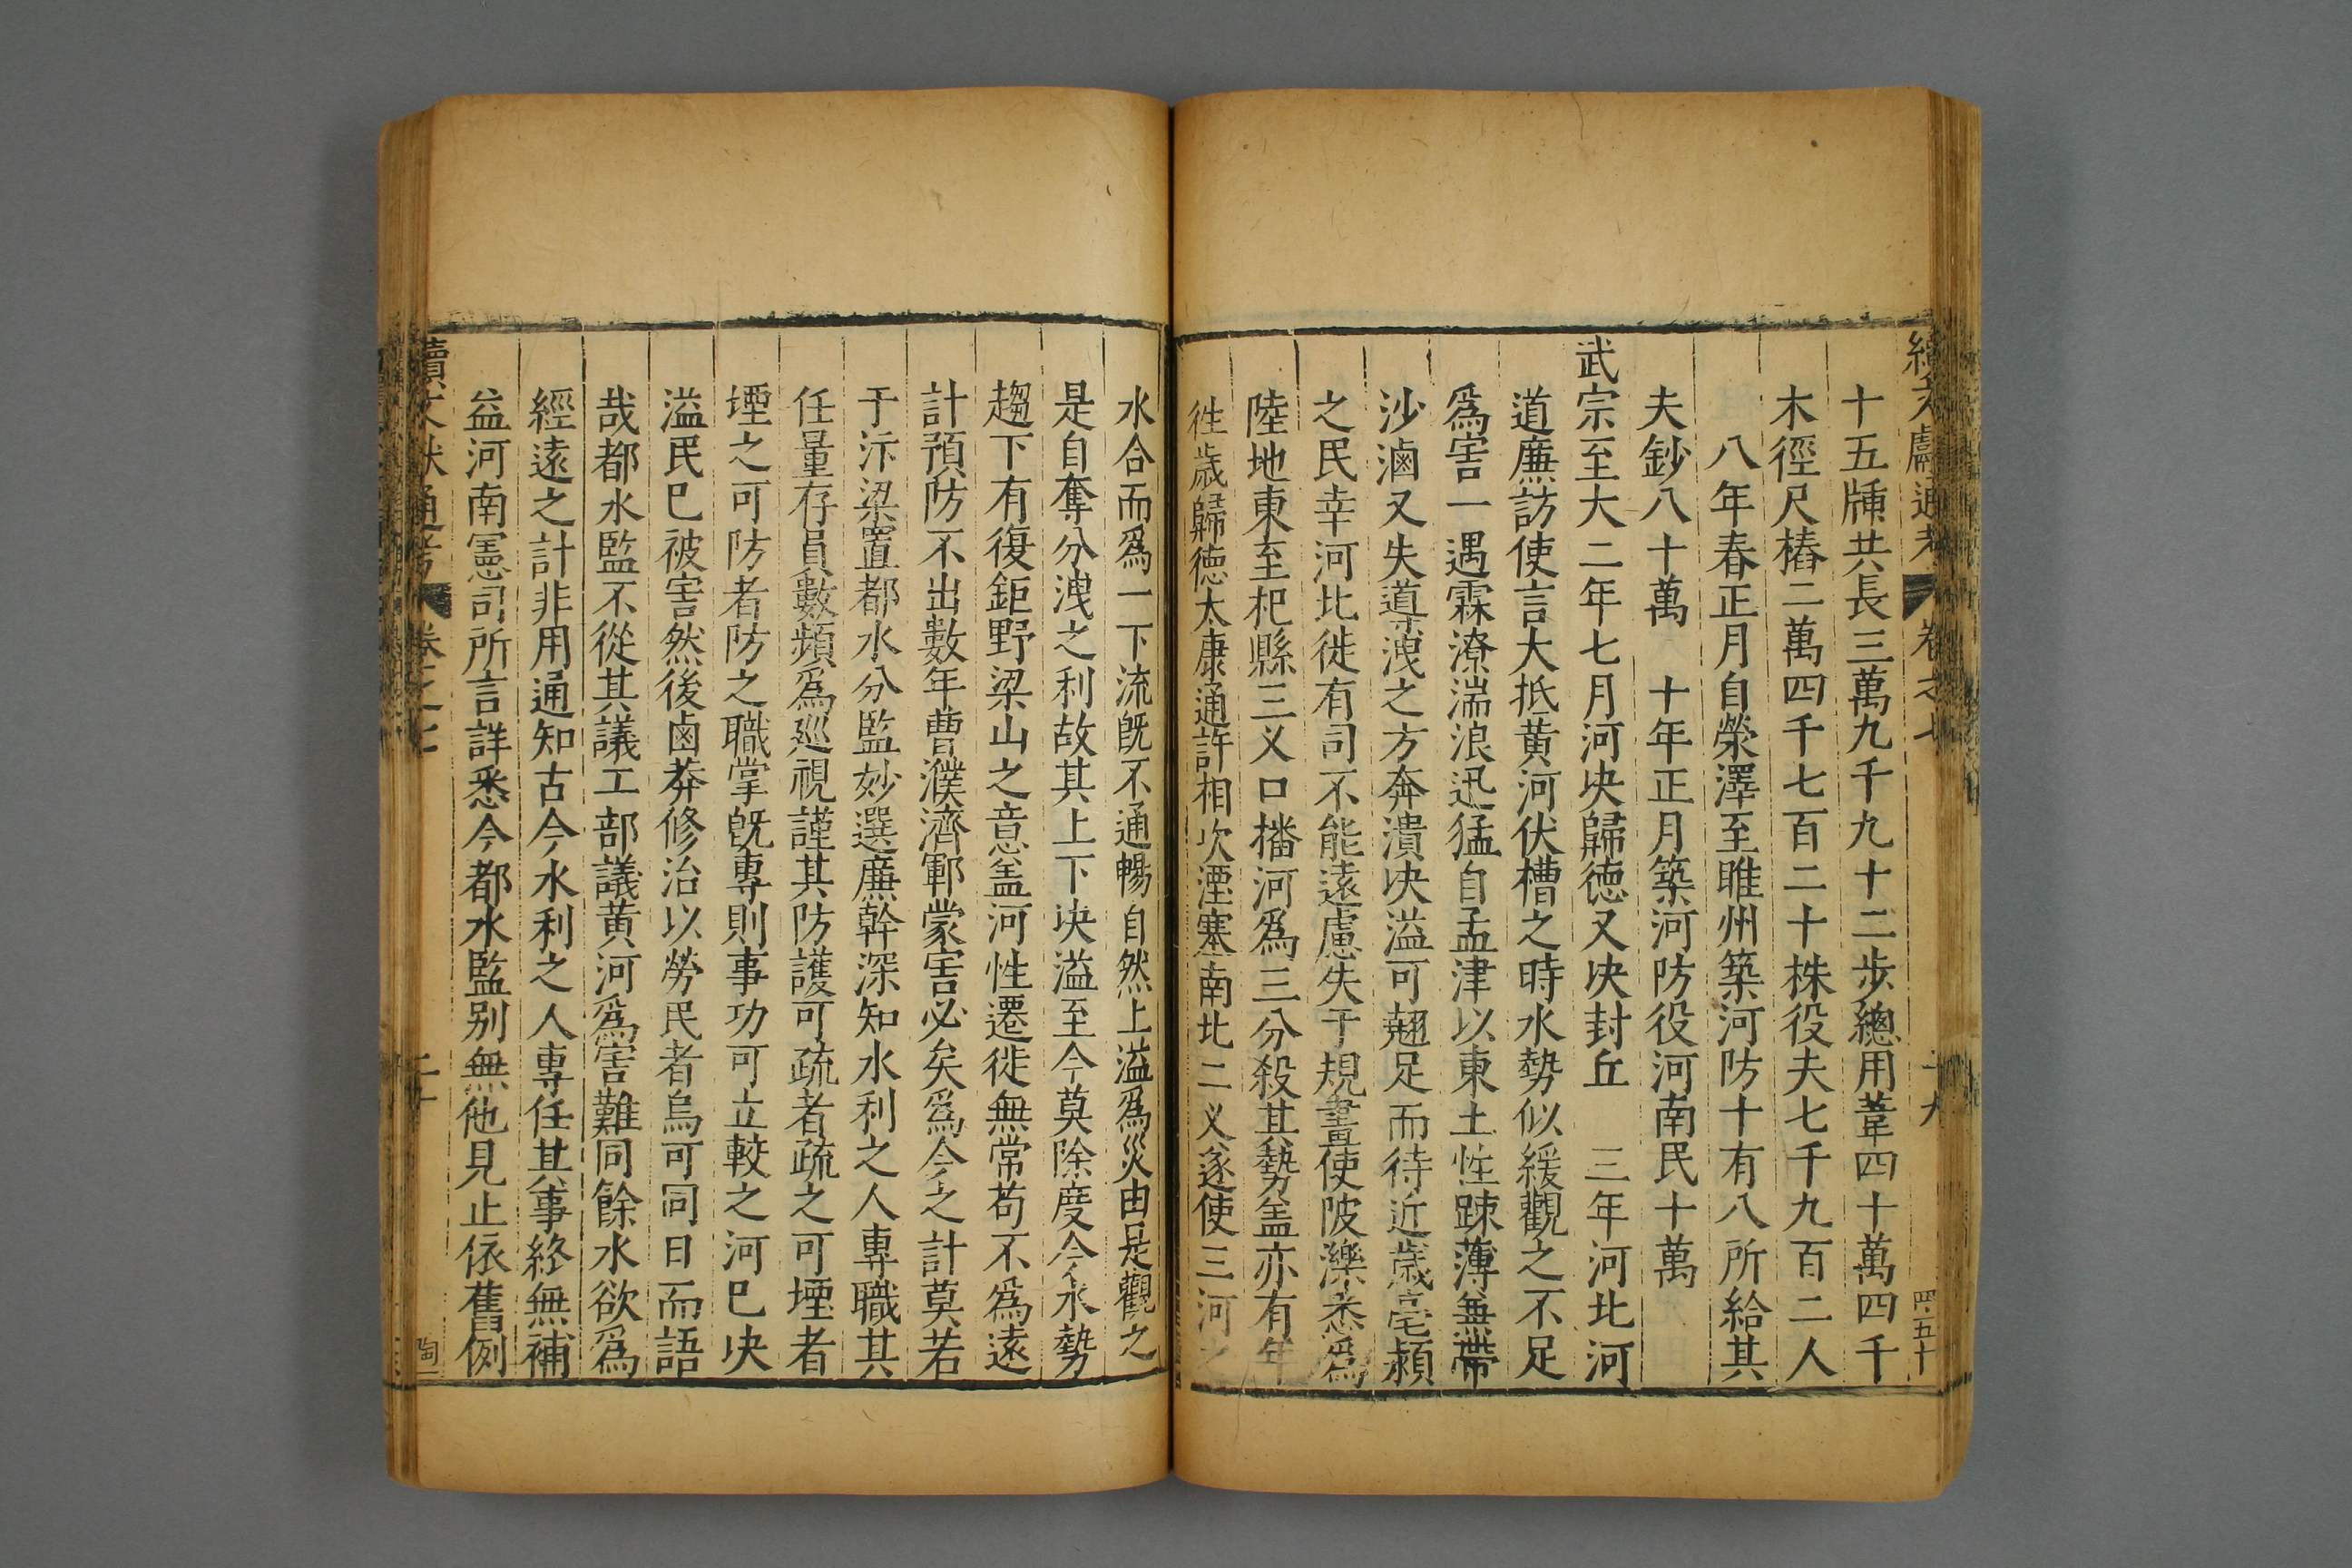 續文獻通考 卷之七 十九 四五十
十五牐共長三萬九千九十二步總用葦四十萬四千
木徑尺樁二萬四千七百二十株役夫七千九百二人
八年春正月自滎澤至睢州築河防十有八所給其
夫鈔八十萬 十年正月築河防役河南民十萬
武宗至大二年七月河决歸德又决封丘 三年河北河
道廉訪使言大抵黃河伏槽之時水勢似緩觀之不足
爲害一遇霖潦湍浪迅猛自孟津以東土性踈薄無帶
沙滷又失導洩之方奔潰决溢可翹足而待近歲亳潁
之民幸河北徙有司不能遠慮失于規畫使陂濼悉爲
陸地東至杞縣三乂口播河爲三分殺其勢盖亦有年
徃歲歸德太康通許相次湮塞南北二乂遂使三河之
水合而爲一下流旣不通暢自然上溢爲災由是觀之
是自奪分洩之利故其上下决溢至今莫除度今水勢
趨下有復鉅野梁山之意盖河性遷徙無常苟不爲遠
計預防不出數年曹濮濟鄆蒙害必矣爲今之計莫若
于汴梁置都水分監妙選廉幹深知水利之人專職其
任量存員數頻爲廵視謹其防護可疏者疏之可堙者
堙之可防者防之職掌旣專則事功可立較之河巳决
溢民巳被害然後鹵莽修治以勞民者烏可同日而語
哉都水監不從其議工部議黃河爲害難同餘水欲爲
經遠之計非用通知古今水利之人專任其事終無補
益河南憲司所言詳悉今都水監别無他見止依舊例
續文獻通考 卷之七 二十 陶一